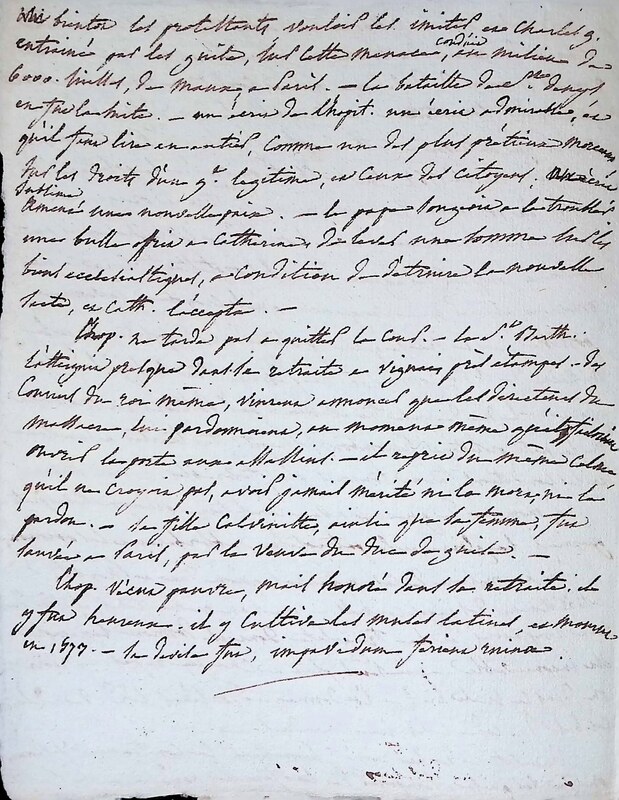 bientot les protestants voulois les imiter, et Charles 9,
entrainé par les guise, sus cette menace, conduit au milieu de
6000 suisses, de meaux a Paris. — la bataille de St denys
en fut la suite. — un écrit de l'hopit. un écrit admirable, et
qu'il faut lire en entier, comme un des plus prétieux morceau
sus les droits d'un gt legitime, et ceux des citoyens. écrit
sublime
Amené une nouvelle paix. — le pape songeoit a la troubler
une bulle offrit a Catherine, de lever une somme sus les
biens ecclesiastiques, a condition de détruire la nouvelle
secte, et Cath. l'accepta. —
l'hop. ne tarda pas a quitter la cour. — la St Barth.
l'atteignit presque dans sa retraite a vignais près étampes. des
Couriers du roi même, vinrent annoncer que les directeurs du
massacre, lui pardonnaient, au moment même qu'il faisoit
ouvrir la porte aux assassins. — il reprit du même calme
qu'il ne croyait pas, avoir jamais mérité ni la mort, ni le
pardon. — sa fille calviniste, ainsi que sa femme, fut
sauvée a Paris, par la veuve du duc de guise. —
l'hop. vécut pauvre, mais honoré dans sa retraite. il
y fut heureux. il y cultiva les muses latines, et mourut
en 1573. — sa devise fut, impavidum ferient ruinæ.